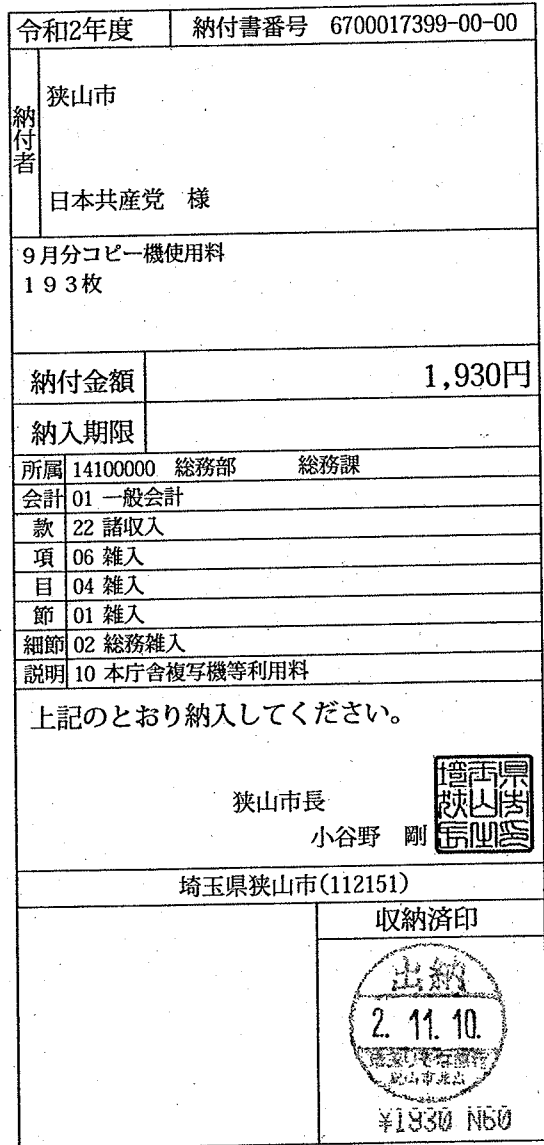 令和2年度 納付書番号 6700017399-00-00
納付者
狭山市
日本共産党 様
9月分コピー機使用料
193枚
納付金額 1,930円
納入期限
所属 14100000 総務部 総務課
会計 01 一般会計
款 22 諸収入
項 06 雑入
目 04 雑入
節 01 雑入
細節 02 総務雑入
説明 10 本庁舎複写機等利用料
上記のとおり納入してください。
狭山市長
小谷野 剛
埼玉県狭山市(112151)
収納済印
出納
2. 11. 10.
¥1930 N60